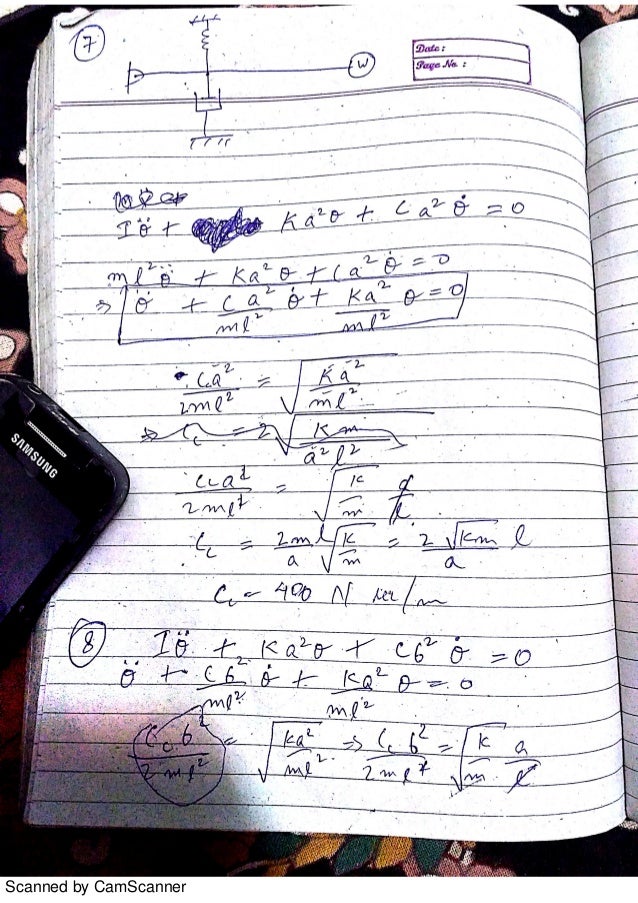 7
W
Date :
Page No. :
Iθ̈ + Ka²θ + Ca²θ̇ = 0
ml²θ̈ + Ka²θ + Ca²θ̇ = 0
⇒ θ̈ + Ca²/ml² θ̇ + Ka²/ml² θ = 0
Ca²/2ml² = √(Ka²/ml²)
⇒ Cc = 2√(Km/a²l²)
SAMSUNG
Cca²/2ml² = √(K/m) a/l
Cc = 2ml/a √(K/m) = 2√(Km)/a l
Cc = 400 N sec/m
8 Iθ̈ + Ka²θ + Cb²θ̇ = 0
θ̈ + Cb²/ml² θ̇ + Ka²/ml² θ = 0
Ccb²/2ml² = √(Ka²/ml²) ⇒ Ccb²/2ml² = √(K/m) a/l
Scanned by CamScanner